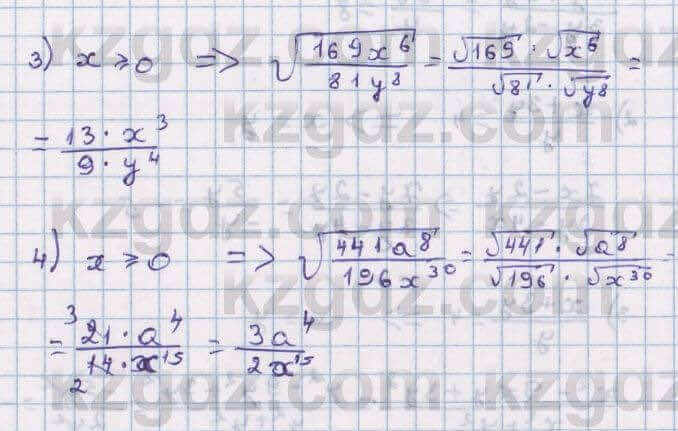 3) x ≥ 0 => √(169x⁶/81y⁸) = √169 · √x⁶ / √81 · √y⁸ =
= 13 · x³ / 9 · y⁴
4) x ≥ 0 => √(441a⁸/196x³⁰) = √441 · √a⁸ / √196 · √x³⁰ =
= ³21 · a⁴ / ₂14 · x¹⁵ = 3a⁴ / 2x¹⁵
kzgdz.com